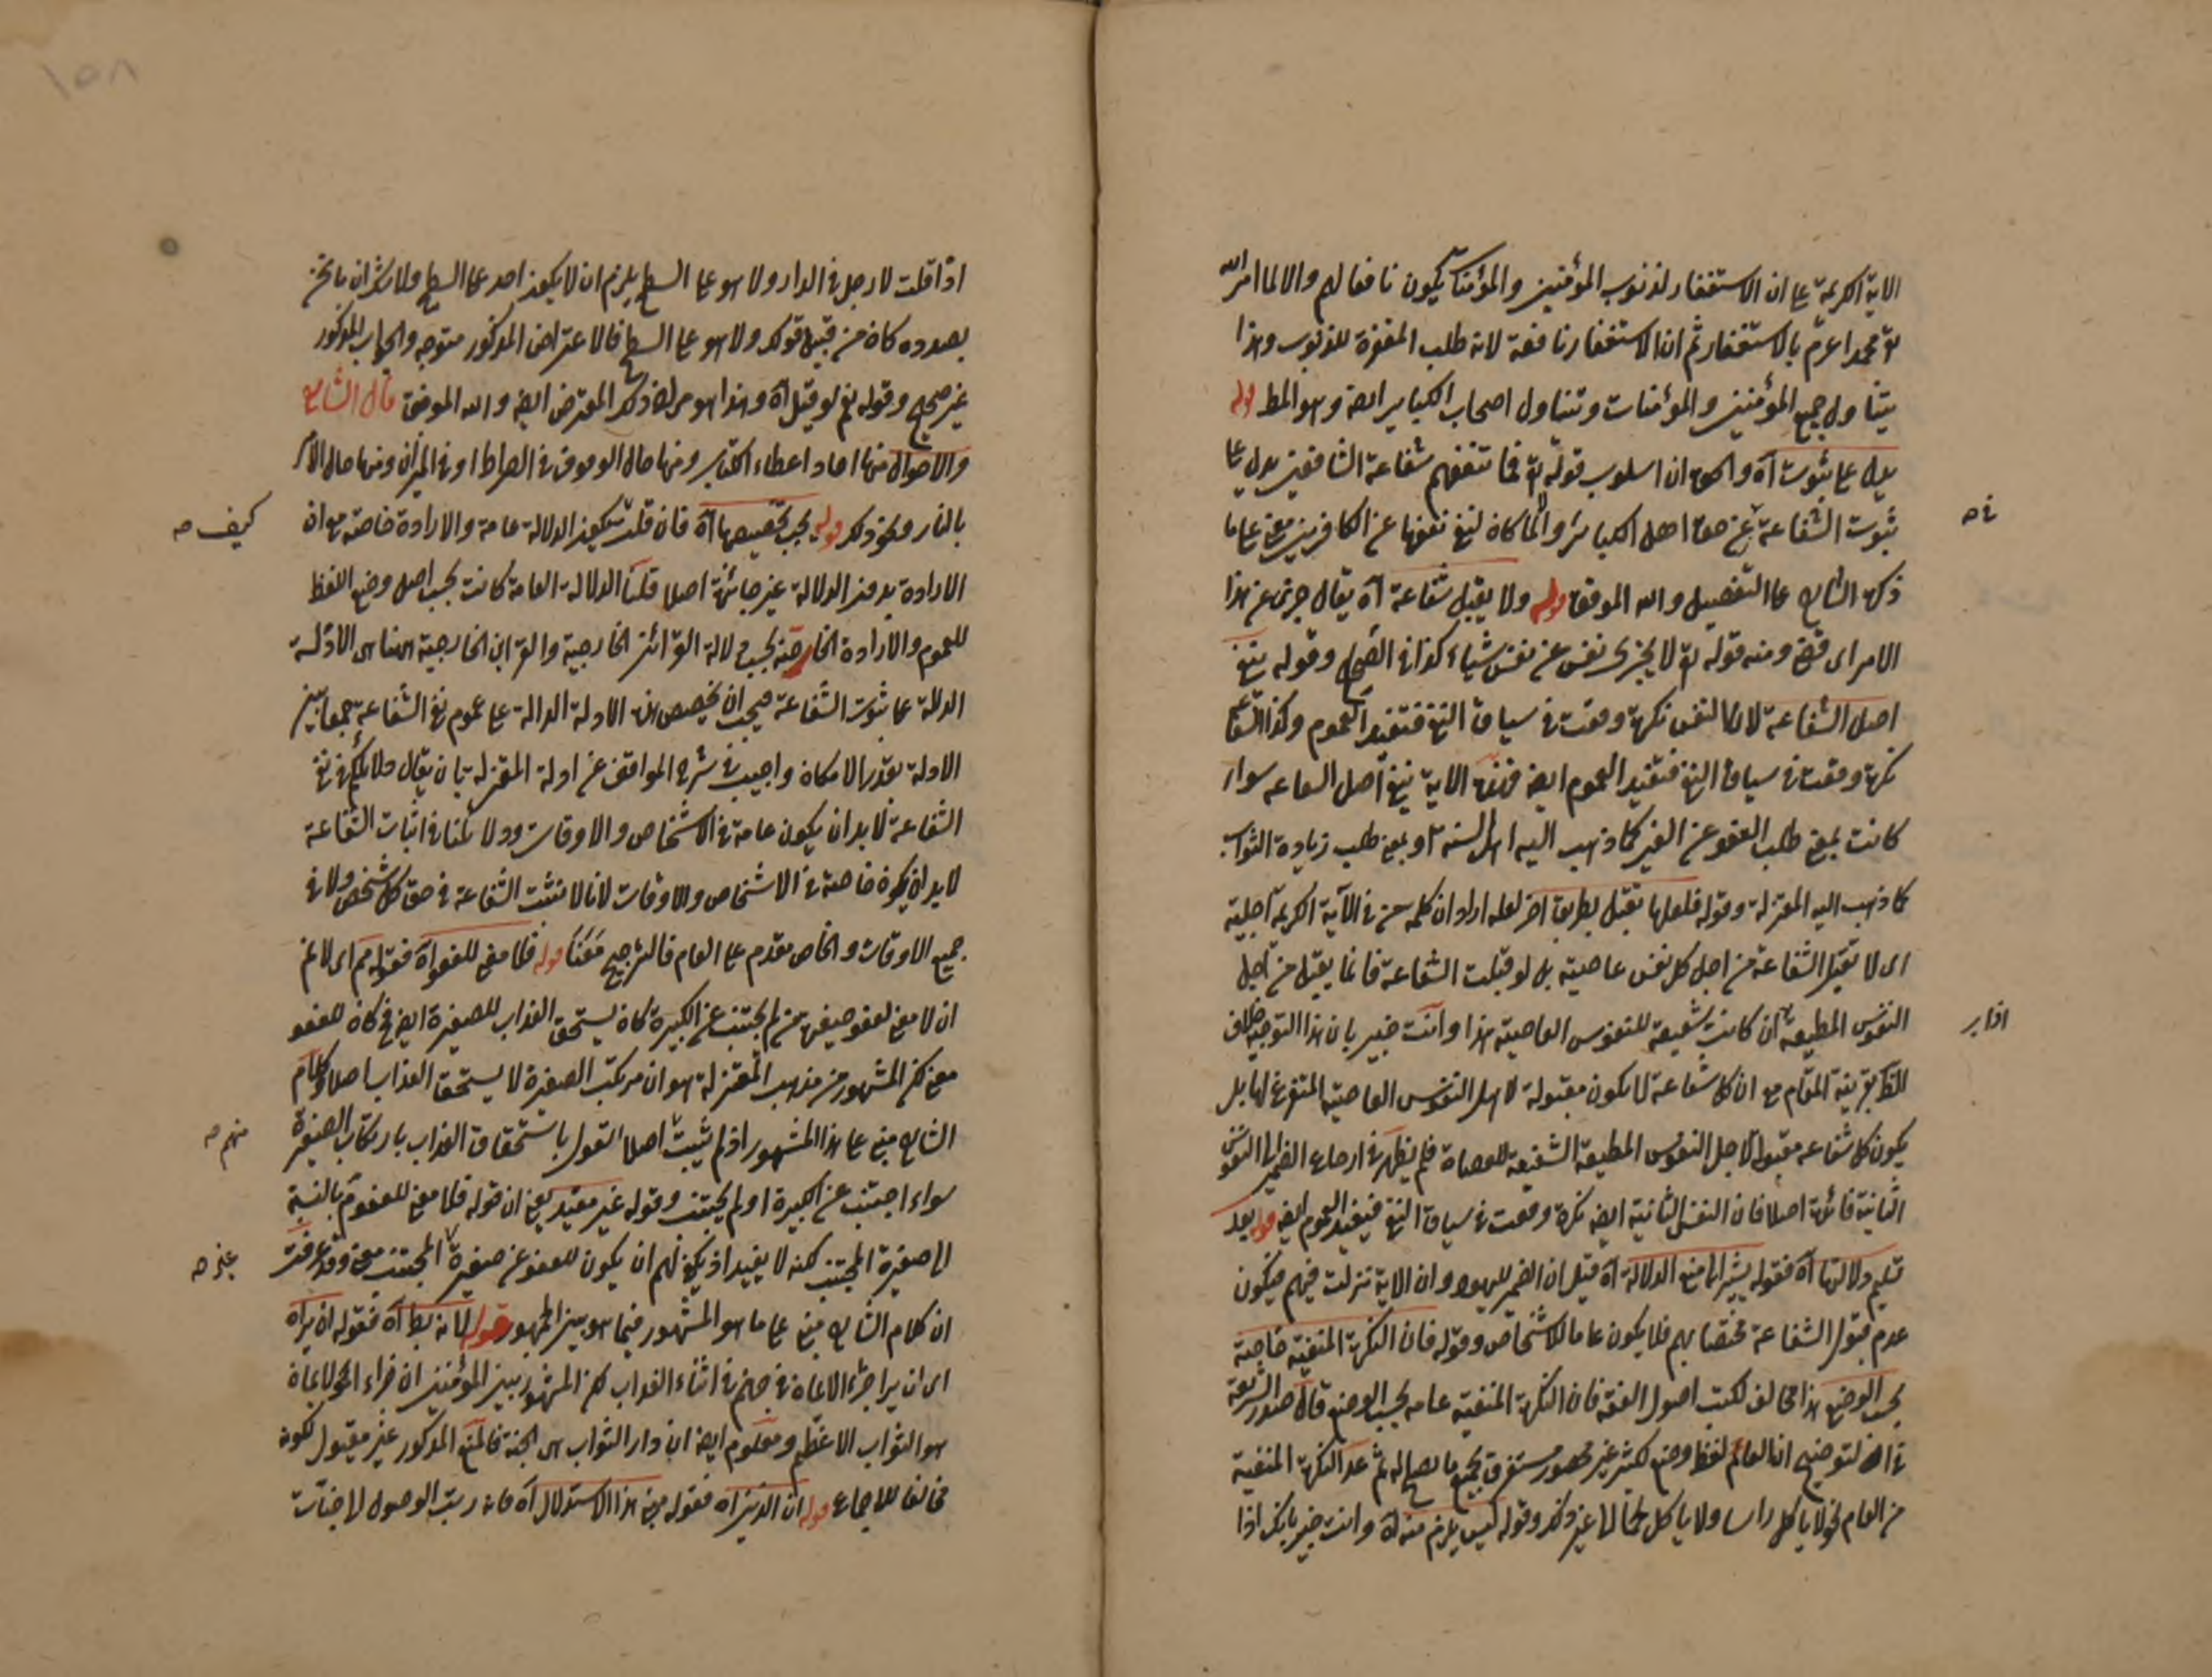 الاية الكريمة على ان الاستغفار لذنوب المؤمنين والمؤمنات يكون نافعا لهم والا لما امر الله
تع محمدا عم بالاستغفار ثم ان الاستغفار نافعة لانه طلب المغفرة للذنوب وهذا
يتناول جميع المؤمنين والمؤمنات وتتناول اصحاب الكباير ايضا وهو المط قوله
يدل على ثبوت آه والحق ان اسلوب قوله تع فما تنفعهم شفاعة الشافعين يدل على
ثبوت الشفاعة في حق اهل الكبائر والا لما كان لنفي نفعها عن الكافرين معنى على ما
ذكره الشارح على التفصيل والله الموفق قوله ولا يقبل شفاعة آه يقال جزى عن هذا
الامر اى قضى ومنه قوله تع لا يجزى نفس عن نفس شيئا كذا فى الصحاح وقوله ينفى
اصل الشفاعة لان النفس نكرة وقعت فى سياق النفى فتفيد العموم وكذا الشفاعة
نكرة وقعت فى سياق النفى فتفيد العموم ايضا فهذه الاية ينفى اصل الشفاعه سواء
كانت بمعنى طلب العفو عن الغير كما ذهب اليه اهل السنة او بمعنى طلب زيادة الثواب
كما ذهب اليه المعتزلة وقوله فلعلها تقبل بطريق اخر لعله اراد ان كلمه من فى الآية الكريمة اجلية
اى لا تقبل الشفاعة من اجل كل نفس عاصية بل لو قبلت الشفاعة فانما يقبل من اجل
النفوس المطيعة ان كانت شفيعة للنفوس العاصية هذا وانت خبير بان هذا التوجيه خلاف
الظ بقرينة المقام مع ان كل شفاعة لا يكون مقبولة لاجل النفوس العاصية المتفرغ لها بل
يكون كل شفاعه مقبولا لاجل النفوس المطيعة الشفيعة للعصاة فلم يظهر فى ارجاع الضمير الى النفس
الثانية فائدة اصلا فان النفس الثانية ايضا نكرة وقعت فى سياق النفى فيفيد العموم ايضا قوله بعد
تسليم دلالتها آه فقوله يشير الى منع الدلالة آه قيل ان الضمير لليهود وان الاية نزلت فيهم فيكون
عدم قبول الشفاعة مختصا بهم فلا يكون عاما للاشخاص وقوله فان النكرة المنفية خاصة
بحسب الوضع هذا مخالف لكتب اصول الفقه فان النكرة المنفية عامه بحسب الوضع قال صدر الشريعة
فى التوضيح ان العام لفظ وضع لكثير غير محصور مستغرق لجميع ما يصلح له ثم عد النكرة المنفية
من العام نحو لا ياكل راسا ولا ياكل طعاما الى غير ذلك وقوله ليس يلزم منه آه وانت خبير بانك اذا
فى صح
اذا بر
اذا قلت لا رجل فى الدار ولا هو على السطح يلزم ان لا يكون احد على السطح ولا شك ان ما نحن
بصدده كان من قبيل قولك ولا هو على السطح فالاعتراض المذكور متوجه والجواب المذكور
غير صحيح وقوله نعم لو قيل آه وهذا هو مراد ذلك المعترض ايضا والله الموفق قال الشارح
والاحوال منها احاد اعطاء الكتاب ومنها حال الوقوف فى الصراط او فى الميزان ومنها حال الامر
بالنار ونحو ذلك قوله يجب تخصيصها آه فان قلت يكون الدلالة عامة والارادة خاصة مع ان
الارادة بدون الدلالة غير جائزة اصلا قلنا الدلالة العامة كانت بحسب اصل وضع اللفظ
للعموم والارادة الخاصة بحسب دلالة القرائن الخارجية والقراين الخارجية ههنا هى الادلة
الدالة على ثبوت الشفاعة فيجب ان يخصص هذه الادلة الدالة على عموم نفى الشفاعة جمعا بين
الادلة بقدر الامكان واجيب فى شرح المواقف عن ادلة المعتزلة بان يقال دلائلكم فى نفى
الشفاعة لا بد ان يكون عامة فى الاشخاص والاوقات ودلائلنا فى اثبات الشفاعة
لا بد ان يكون خاصة فى الاشخاص والاوقات لانا لا نثبت الشفاعة فى حق كل شخص ولا فى
جميع الاوقات والخاص مقدم على العام فالترجيح معنا قوله فلا معنى للعفو آه فقوله مم اى لا نم
ان لا معنى لعفو صغيرة من لم يجتنب عن الكبيرة كان يستحق العذاب للصغيرة ايضا فح كان للعفو
معنى لكن المشهور من مذهب المعتزلة هو ان مرتكب الصغيرة لا يستحق العذاب اصلا وكلام
الشارح مبنى على هذا المشهور اذ لم يثبت اصلا القول باستحقاق العذاب بارتكاب الصغيرة
سواء اجتنب عن الكبيرة او لم يجتنب وقوله غير مقيد يعنى ان قوله فلا معنى للعفو مم بالنسبة
الى صغيرة المجتنب لكنه لا يفيد اذ يكفيهم ان يكون للعفو عن صغيرة المجتنب معنى وقد عرفت
ان كلام الشارح مبنى على ما هو المشهور فيما هو بين الجمهور قوله لانه بط آه فقوله ان يراه
اى ان يرا جزاء الايمان فى جهنم فى اثناء العذاب لكن المشهور بين المؤمنين ان جزاء الايمان
هو الثواب الاعظم ومعلوم ايضا ان دار الثواب هى الجنة فالمنع المذكور غير مقبول لكونه
مخالفا للاجماع قوله ان الذين آه فقوله مبنى هذا الاستدلال آه فانه رتب الوصول الى جنات
كيف صح
منهم صح
غير صح
١٥٨